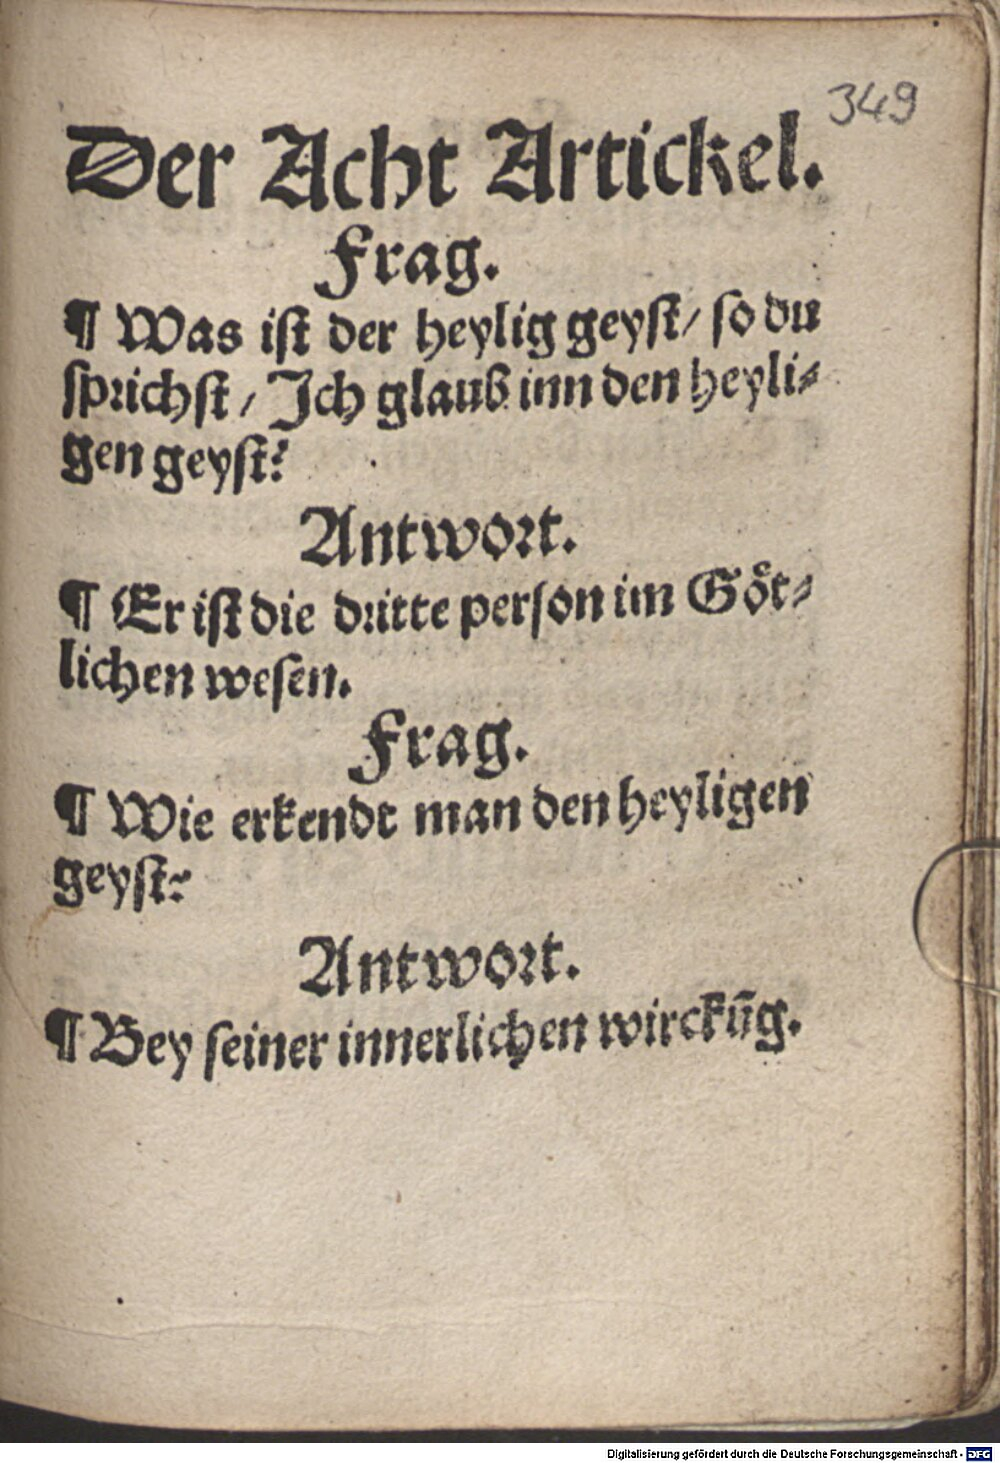 349
Der Acht Artickel.
Frag.
¶ Was ist der heylig geyst/ so du
sprichst/ Ich glaub inn den heyli⸗
gen geyst?
Antwort.
¶ Er ist die dritte person im Goͤt⸗
lichen wesen.
Frag.
¶ Wie erkendt man den heyligen
geyst?
Antwort.
¶ Bey seiner innerlichen wirckūg.
Digitalisierung gefördert durch die Deutsche Forschungsgemeinschaft - DFG